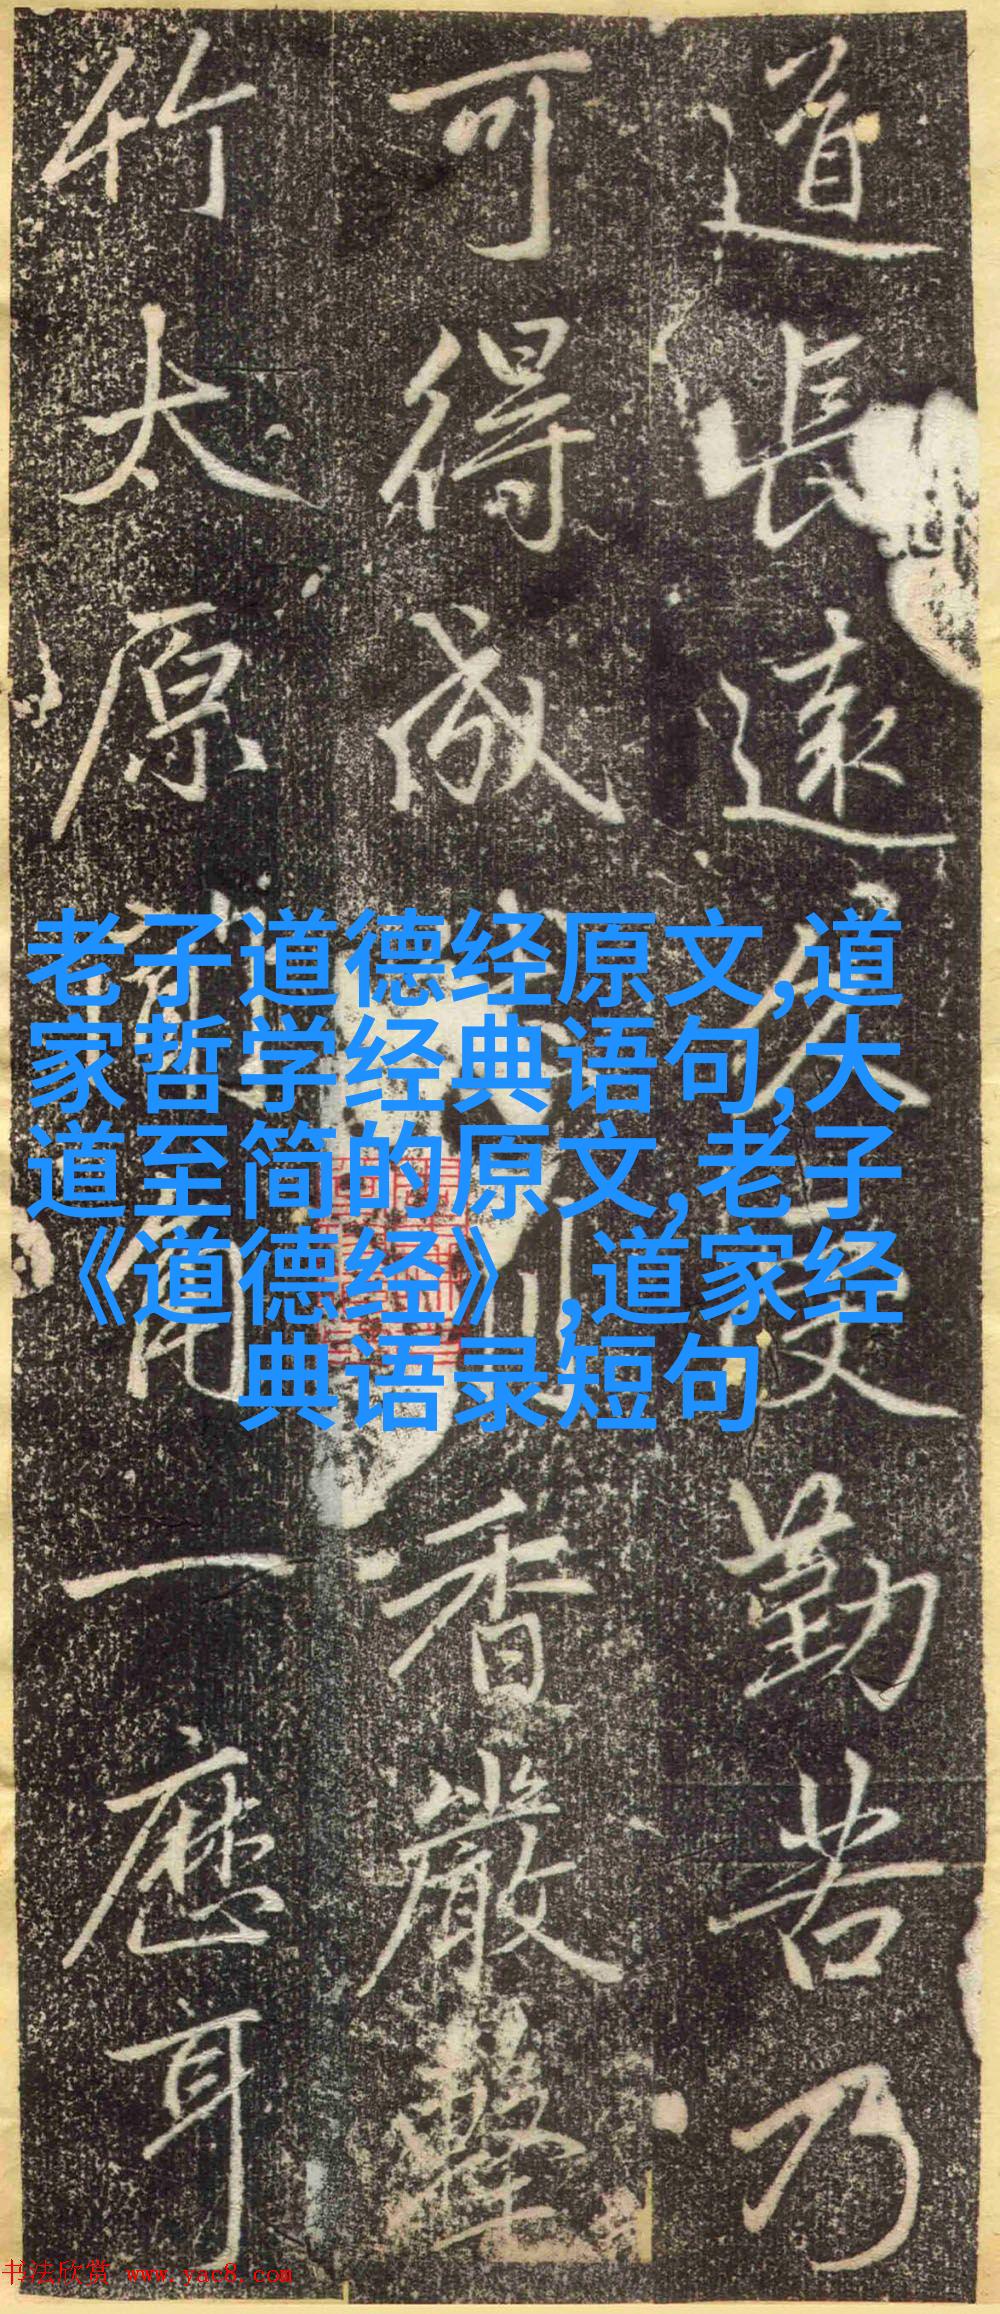 道長遠久受勤苦乃
可得成 香嚴擊
竹太原 角一應耳
老子道德经原文,道
家哲学经典语句,大
道至简的原文,老子
《道德经》,道家经
典语录短句
书法欣赏 www.yac8.com